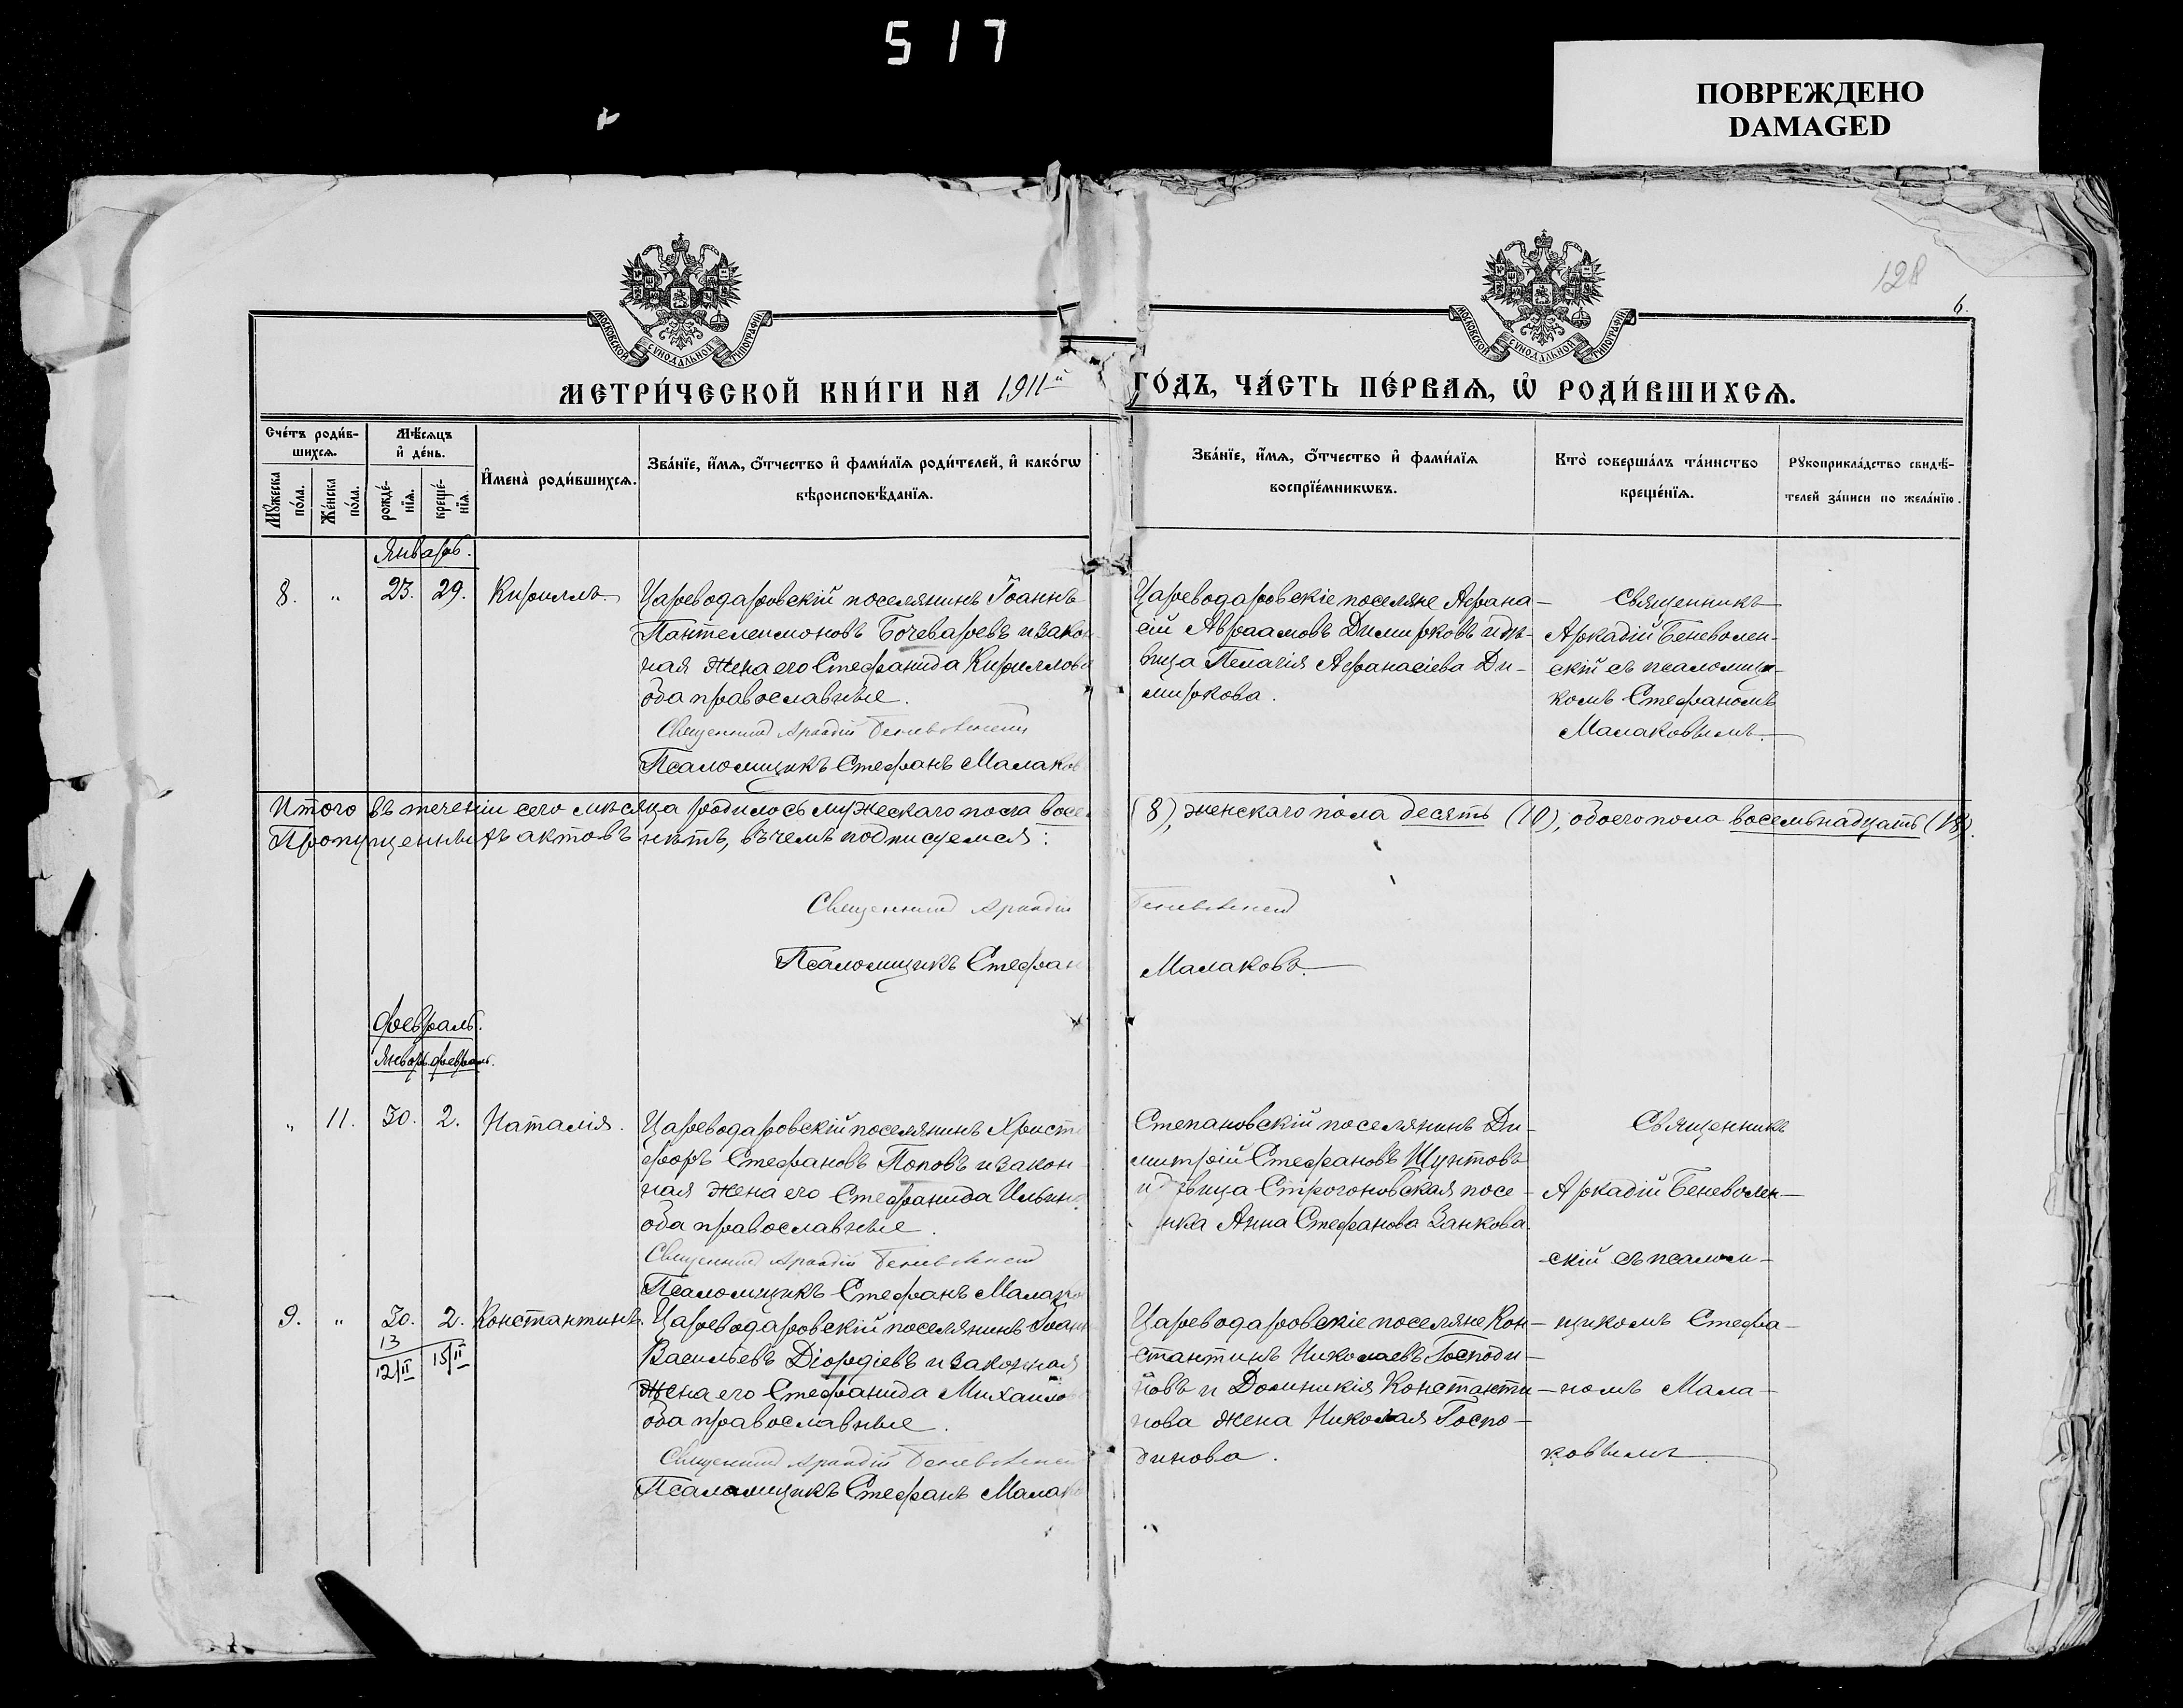 517
ПОВРЕЖДЕНО
DAMAGED
128
6.
МОСКОВСКОЙ СѴНОДАЛЬНОЙ ТИПОГРАФІИ
МОСКОВСКОЙ СѴНОДАЛЬНОЙ ТИПОГРАФІИ
МЕТРИ́ЧЕСКОЙ КНИ́ГИ НА 1911й ГО́ДЪ, ЧА́СТЬ ПЕ́РВАѦ, Ѽ РОДИ́ВШИХСѦ.
Сче́тъ роди́в-
шихсѧ.
Мꙋ́жеска по́ла.
Же́нска по́ла.
Мѣ́сѧцъ
и҆ де́нь.
рожде́-
нїѧ.
креще́-
нїѧ.
И҆мена̀ роди́вшихсѧ.
Зва́нїе, и҆́мѧ, ѻ҆́тчество и҆ фами́лїѧ роди́телей, и҆ како́гѡ
вѣроисповѣ́данїѧ.
Зва́нїе, и҆́мѧ, ѻ҆́тчество и҆ фами́лїѧ
воспрїе́мникѡвъ.
Кто̀ соверша́лъ та́инство
креще́нїѧ.
Рꙋкоприкла́дство свидѣ́-
телей за́писи по жела́нїю.
Январь.
8. „ 23. 29. Кириллъ.
Цареводаровскій поселянинъ Іоаннъ
Пантелеимоновъ Бочеваровъ и закон
ная жена его Стефанида Кириллова
оба православные.
Священникъ Аркадій Беневоленскій
Псаломщикъ Стефанъ Малаков
Цареводаровскіе поселяне Афана-
сій Авраамовъ Димирковъ и дѣ-
вица Пелагія Афанасіева Ди-
миркова.
Священникъ
Аркадій Беневолен-
скій съ псаломщи-
комъ Стефаномъ
Малаковымъ.
Итого въ теченіи сего мѣсяца родилось мужескаго пола восе (8), женскаго пола десять (10), обоего пола восемьнадцать (18).
Пропущенныхъ актовъ нѣтъ, въ чемъ подписуемся:
Священникъ Аркадій Беневоленскій
Псаломщикъ Стефан Малаковъ.
Февраль.
Январь. Февраль.
„ 11. 30. 2. Наталія.
Цареводаровскій поселянинъ Христ
форъ Стефановъ Поповъ и закон-
ная жена его Стефанида Ильина
оба православные.
Священникъ Аркадій Беневоленскій
Псаломщикъ Стефанъ Малако
Степановскій поселянинъ Ди-
митрій Стефановъ Шунтовъ
и дѣвица Строгоновская посе-
нка Анна Стефанова Занкова.
Священникъ
Аркадій Беневолен-
скій съ псалом-
щикомъ Стефа-
номъ Мала-
ковымъ
9. „ 30. 2. Константинъ.
13
12/II 15/II
Цареводаровскій поселянинъ Іоанн
Васильевъ Діордіевъ и законная
жена его Стефанида Михаилов
оба православные.
Священникъ Аркадій Беневоленскій
Псаломщикъ Стефанъ Малако
Цареводаровскіе поселяне Кон-
стантинъ Николаевъ Господи-
новъ и Доминикія Константи-
нова жена Николая Госпо-
динова.